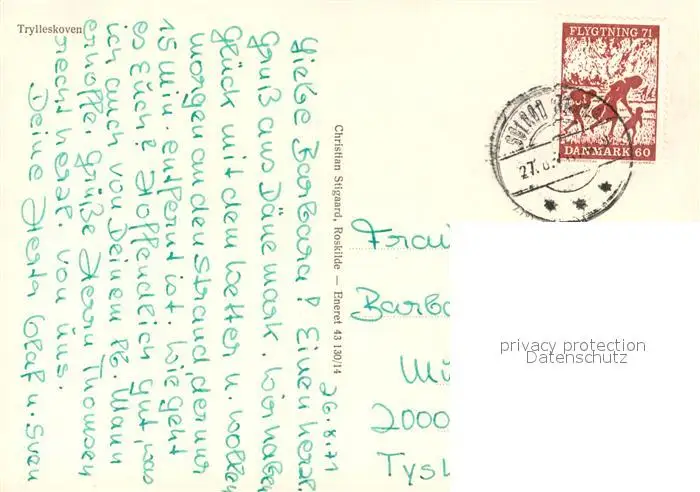 Trylleskoven
FLYGTNING 71
DANMARK 60
27. 8.
Christian Stigaard, Roskilde — Eneret 43 130/14
26.8.71
Liebe Barbara! Einen herzl.
Gruß aus Dänemark. Wir haben
Glück mit dem Wetter u. wollen
morgen an den Strand, der nur
15 min. entfernt ist. Wie geht
es Euch? Hoffendlich gut, was
ich auch von Deinem lb. Mann
erhoffe. Grüße Herrn Thomsen
recht herzl. von uns.
Deine Herta Olaf u. Sven
Frau
Barba
2000
Tys
privacy protection
Datenschutz